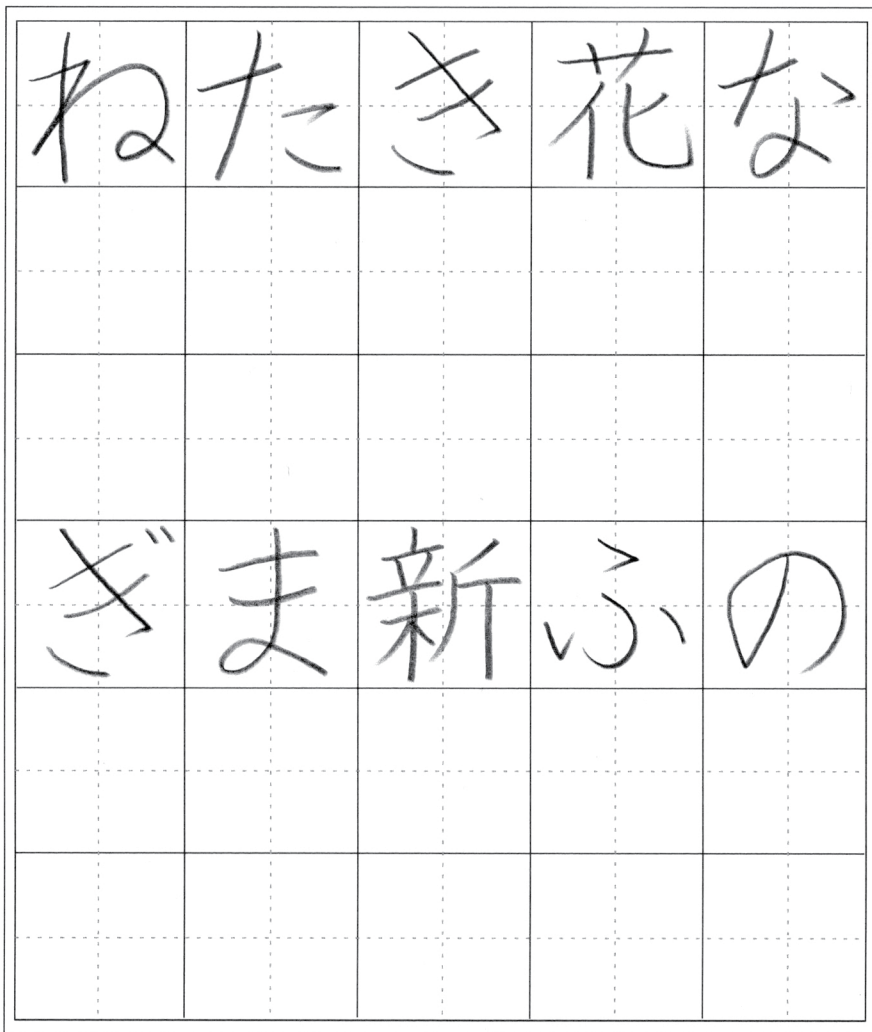 ねたき花な
ぎま新ふの